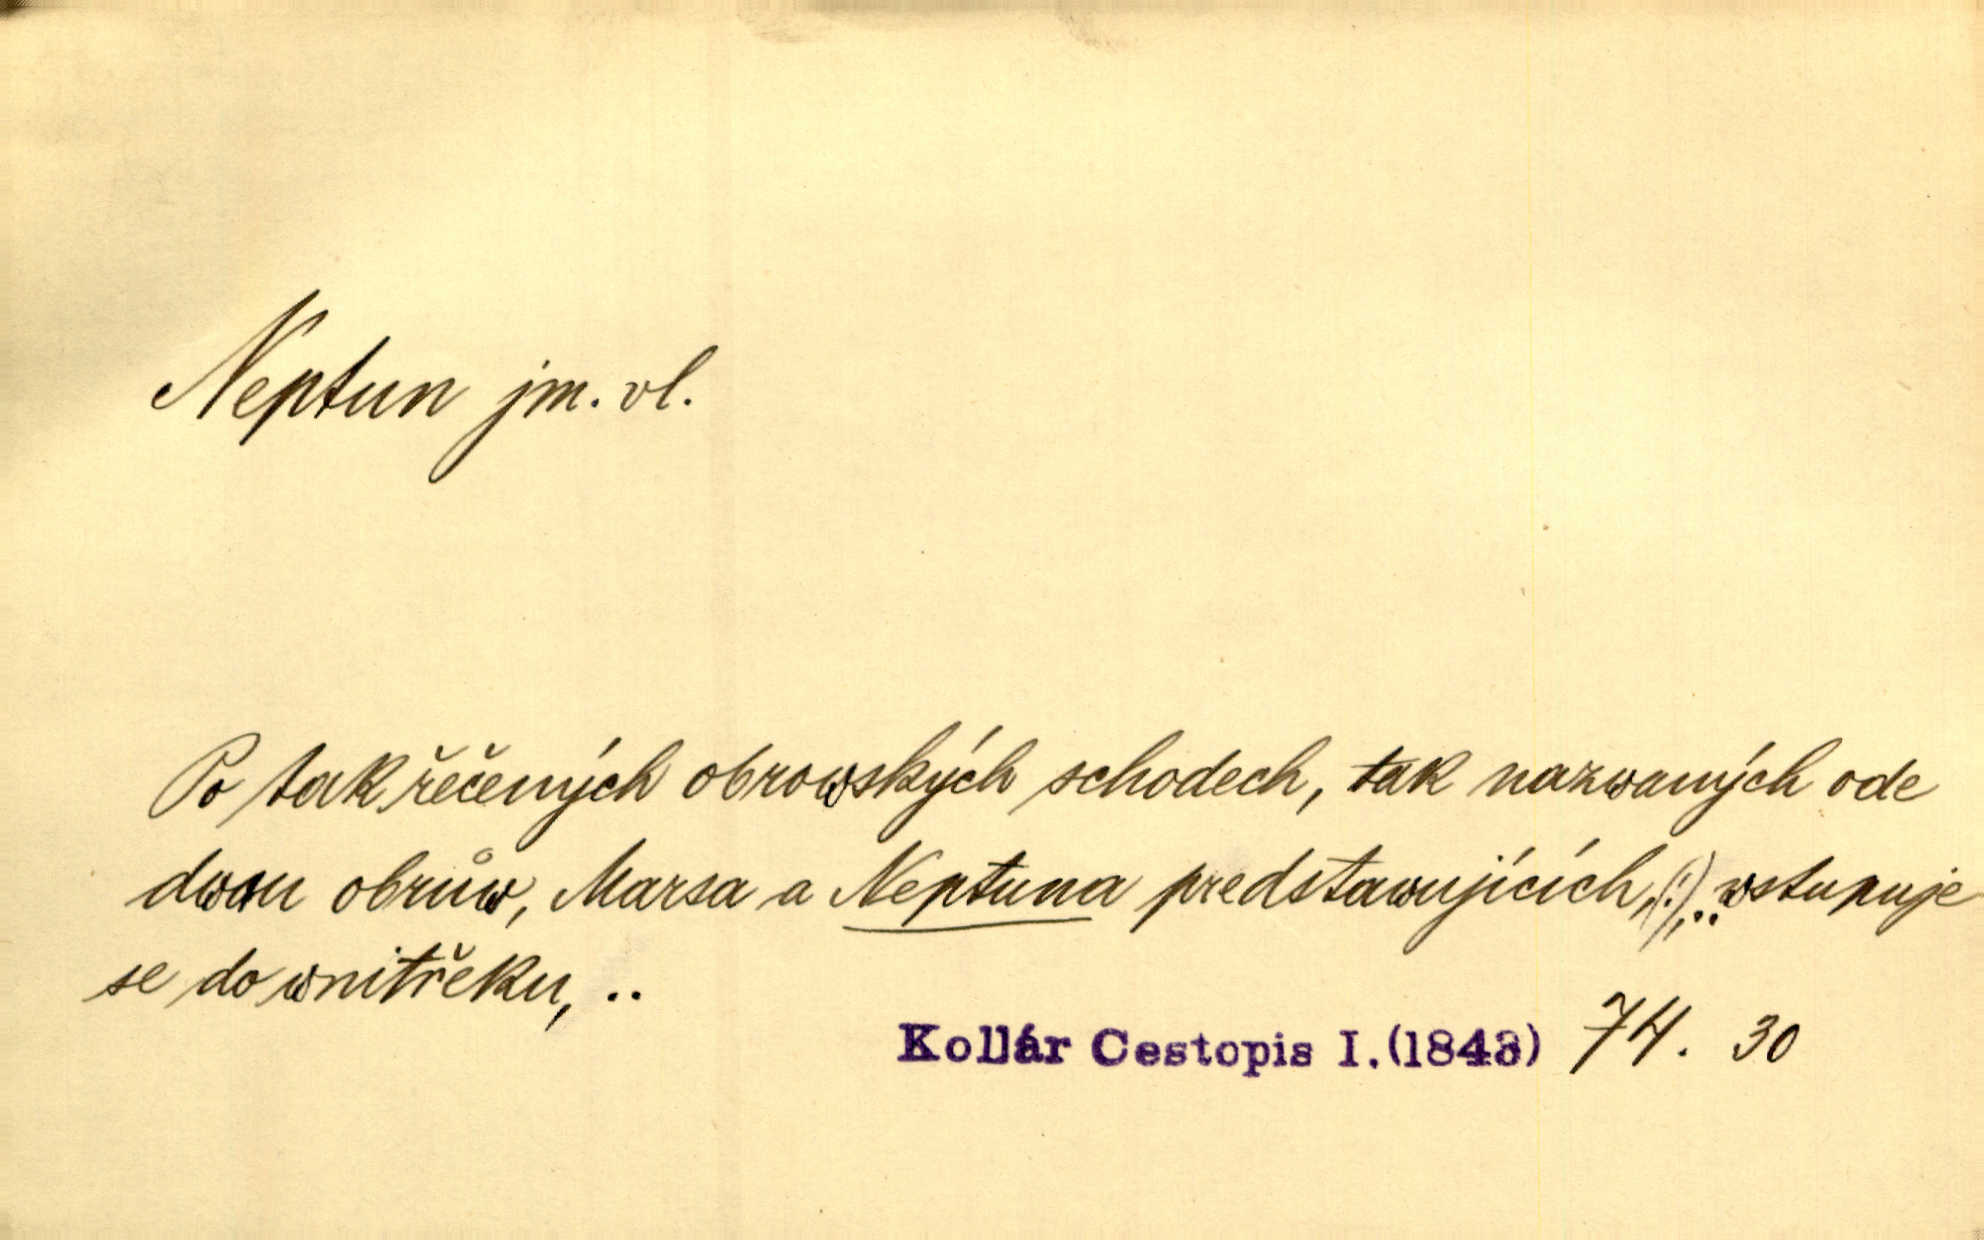 Neptun jm. vl.
Po tak řečených obrowských schodech, tak nazwaných ode
dwou obrůw, Marsa a Neptuna predstawujících, (:), .. wstupuje
se do wnitřeku, ..
Kollár Cestopis I. (1843) 74. 30